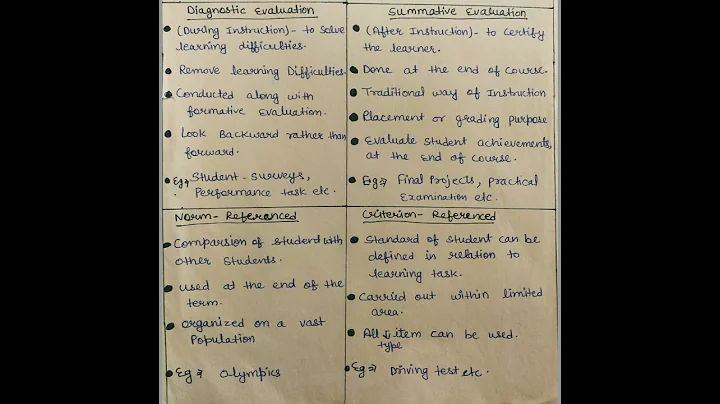 Diagnostic Evaluation
• (During Instruction)- to solve
learning difficulties.
• Remove learning Difficulties.
• Conducted along with
formative Evaluation.
• Look Backward rather than
forward.
• Eg⇒ Student-surveys,
Performance task etc.
Summative Evaluation
• (After Instruction)- to certify
the learner.
• Done at the end of course.
• Traditional way of Instruction
• Placement or grading purpose
• Evaluate student achievements,
at the end of course.
• Eg⇒ Final Projects, practical
Examination etc.
Norm-Referanced
• Comparsion of student with
other students.
• used at the end of the
term.
• organized on a vast
Population
• Eg⇒ O-lympics
Criterion-Referenced
• Standard of student can be
defined in relation to
learning task.
• Carried out within limited
area.
• All ↓ item can be used.
type
• Eg⇒ Driving test etc.